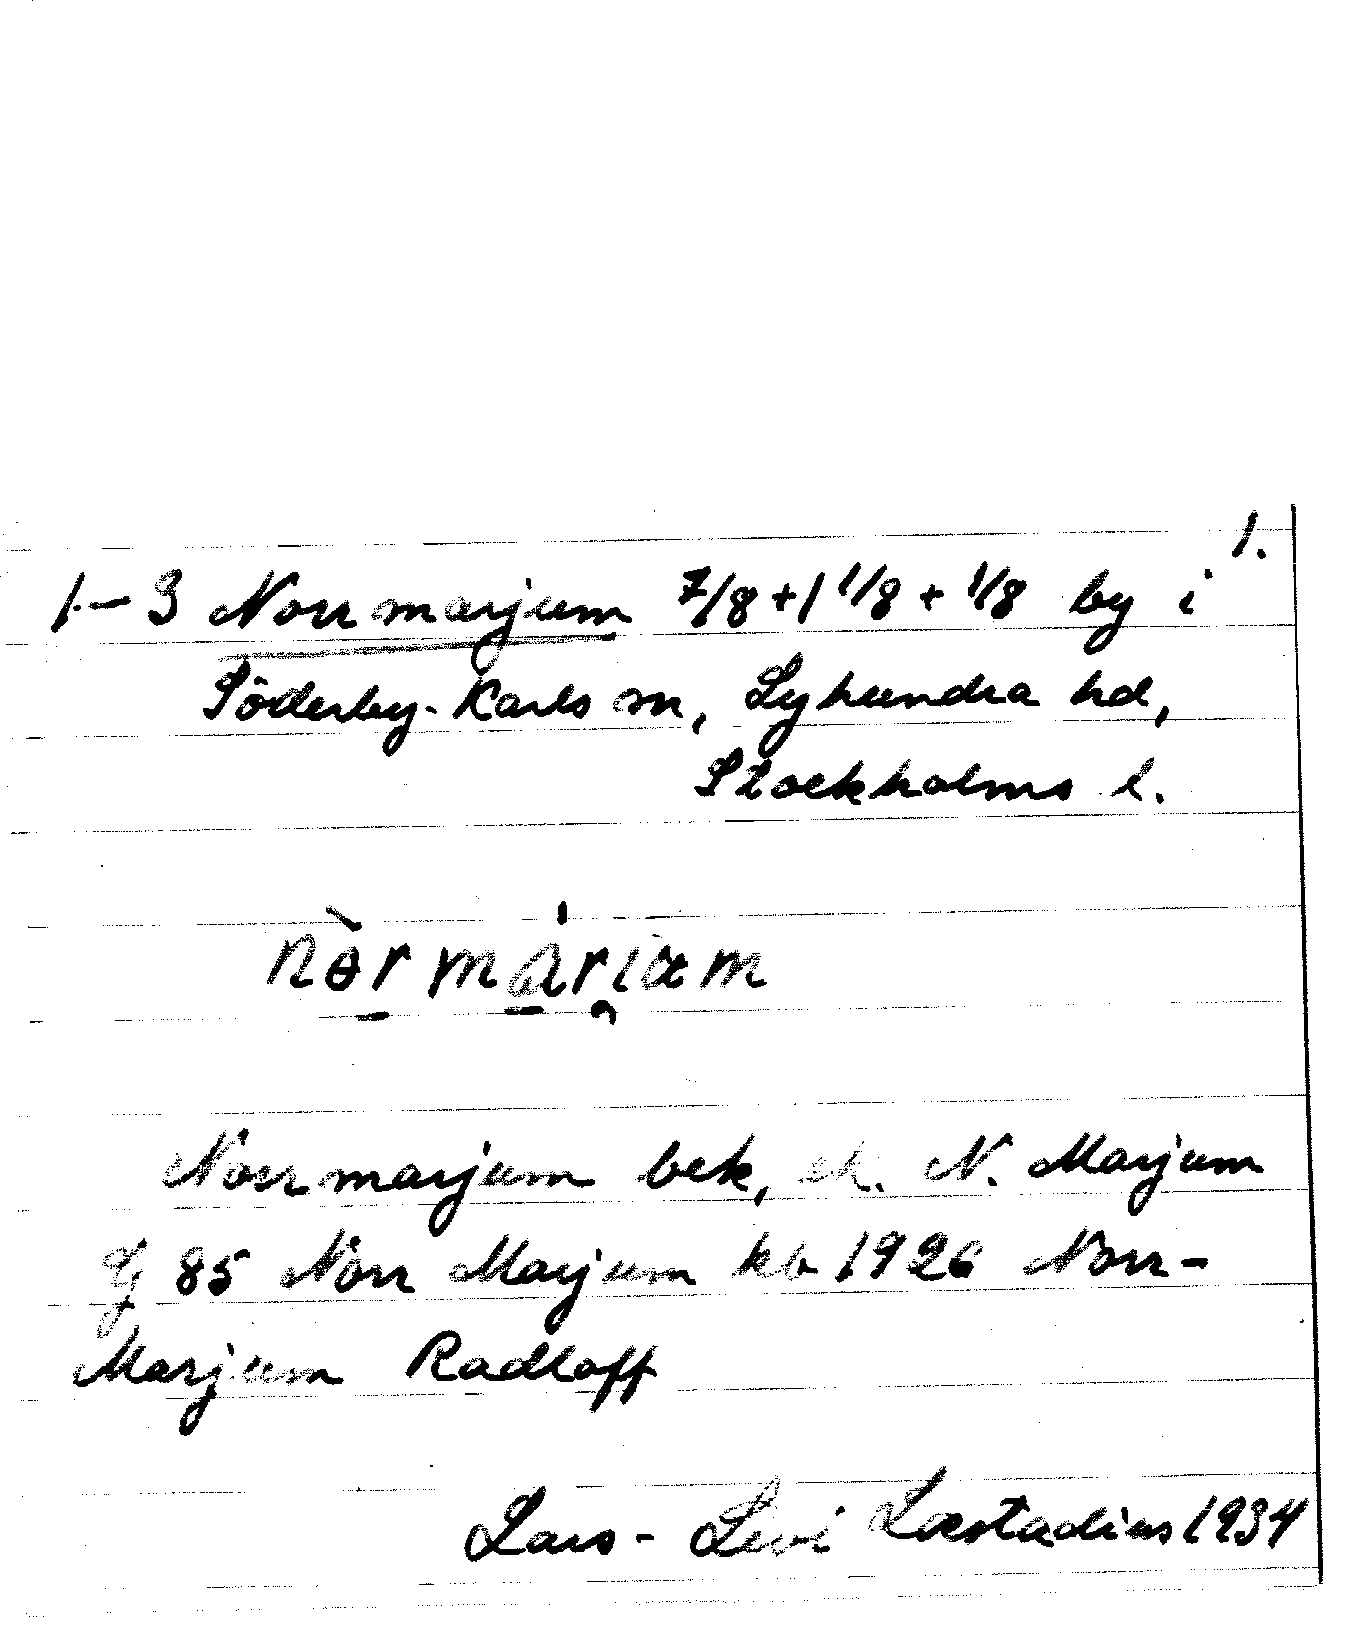 1.
1.–3 Norrmarjum 7/8 + 1 1/8 + 1/8 by i
Söderby-Karls sn, Lyhundra hd,
Stockholms l.
nὸr márjum
Norrmarjum bek, ek. N. Marjum
Gj 85 Norr Marjum kb 1926 Norr-
Marjum Radloff
Lars-Levi Læstadius 1934